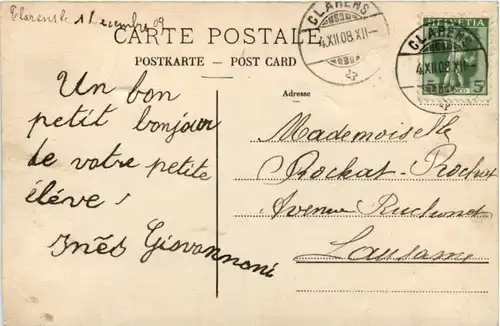 Clarens le 1 Decembre 09
CARTE POSTALE
POSTKARTE — POST CARD
CLARENS
4.XII.08.XII-
HELVETIA
5
CLARENS
4.XII.08.XII-
Adresse
Un bon
petit bonjour
de votre petite
élève
Inês Giovannoni
Mademoiselle
Rochat-Rochat
Avenue Ruchonnet
Lausanne